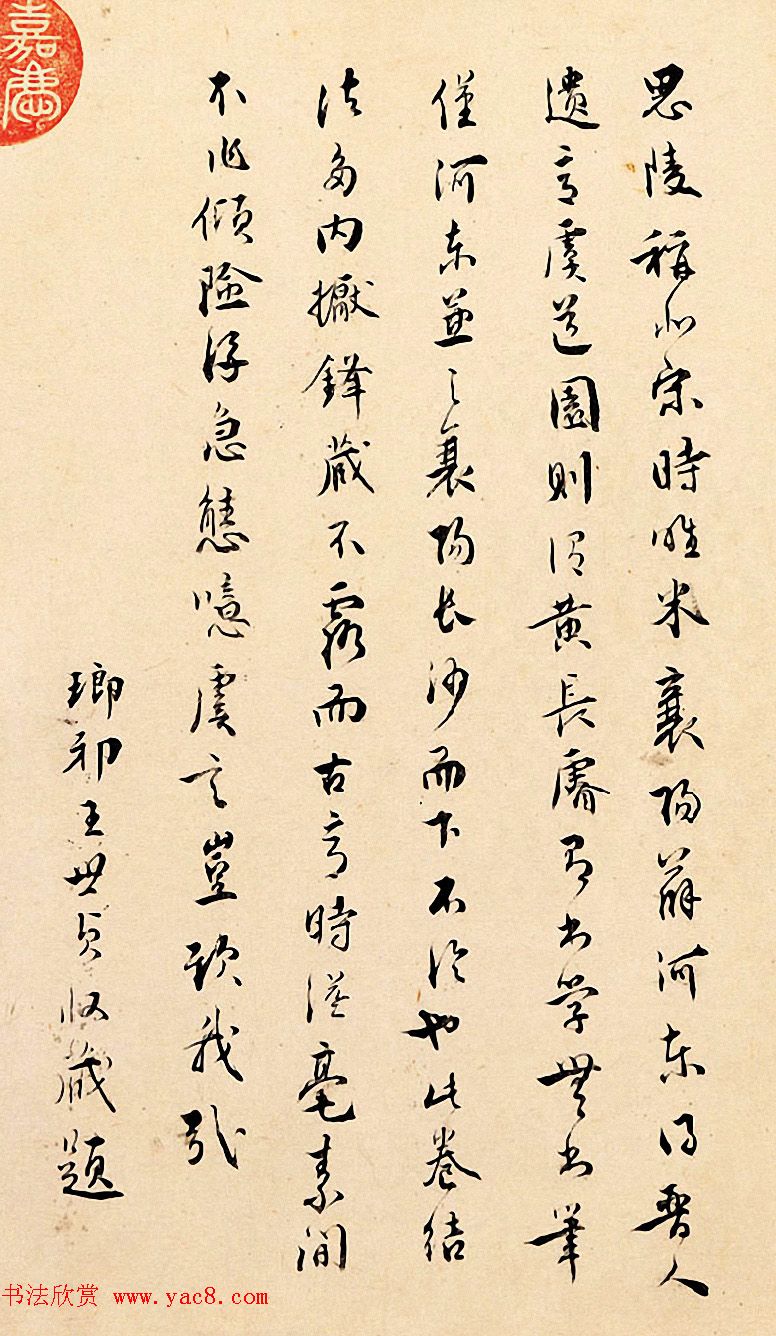 思陵稱北宋時唯米襄陽薛河東得晉人
遺意虞道園則謂黃長睿有書學無書筆
僅河東並之襄陽長沙而下不論也此卷結
法多内擫鋒藏不露而古意時溢毫素間
不作傾險浮急態噫虞言豈欺我哉
瑯邪王世貞收藏題
書法欣赏 www.yac8.com